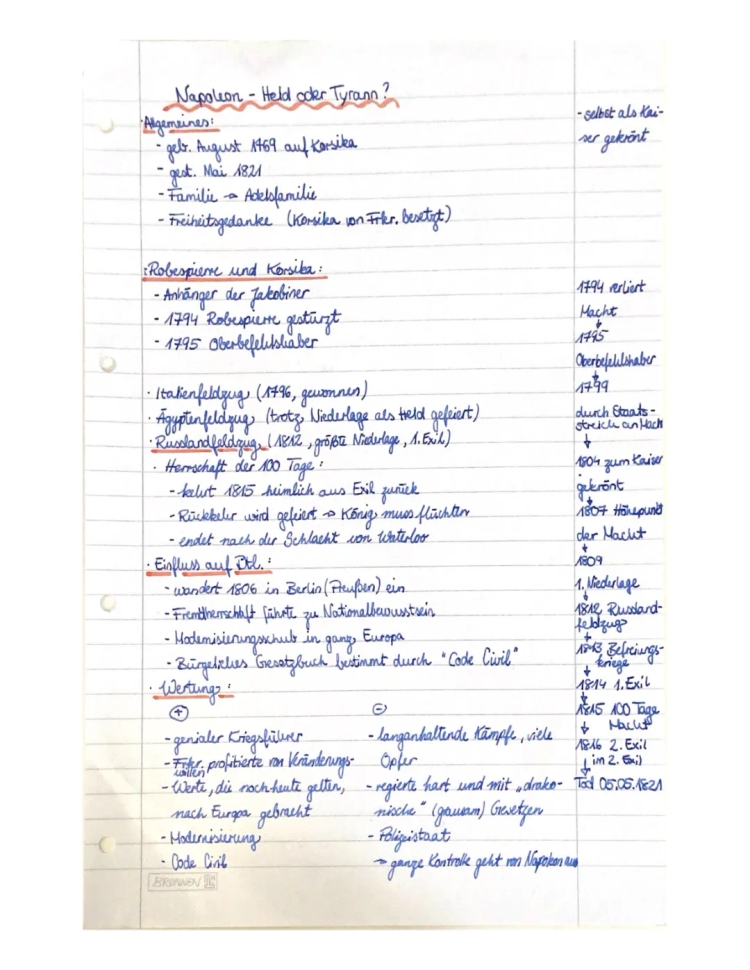 Napoleon - Held oder Tyrann?
Allgemeines:
- geb. August 1769 auf Korsika
- gest. Mai 1821
- Familie → Adelsfamilie
- Freiheitsgedanke (Korsika von Frkr. besetzt)
: Robespierre und Korsika:
- Anhänger der Jakobiner
- 1794 Robespierre gestürzt
- 1795 Oberbefehlshaber
· Italienfeldzug (1796, gewonnen)
· Ägyptenfeldzug (trotz Niederlage als Held gefeiert)
· Russlandfeldzug (1812, größte Niederlage, 1. Exil)
· Herrschaft der 100 Tage:
- kehrt 1815 heimlich aus Exil zurück
- Rückkehr wird gefeiert → König muss flüchten
- endet nach der Schlacht von Waterloo
· Einfluss auf Dtl.:
- wandert 1806 in Berlin (Preußen) ein
- Fremdherrschaft führte zu Nationalbewusstsein
- Modernisierungsschub in ganz Europa
- Bürgerliches Gesetzbuch bestimmt durch "Code Civil"
· Wertung:
+
- genialer Kriegsführer
- Frkr. profitierte von Veränderungs-
willen
- Werte, die noch heute gelten,
nach Europa gebracht
- Modernisierung
- Code Civil
-
- langanhaltende Kämpfe, viele
Opfer
- regierte hart und mit „drako-
nische" (grausam) Gesetzen
- Polizeistaat
→ ganze Kontrolle geht von Napoleon aus
- selbst als Kai-
ser gekrönt
1794 verliert
Macht
↓
1795
Oberbefehlshaber
↓
1799
durch Staats-
streich an Mach
↓
1804 zum Kaiser
gekrönt
↓
1807 Höhepunkt
der Macht
↓
1809
1. Niederlage
↓
1812 Russland-
feldzug
↓
1813 Befreiungs-
kriege
↓
1814 1. Exil
↓
1815 100 Tage
↓ Macht
1816 2. Exil
↓ im 2. Exil
Tod 05.05.1821
BRUNNEN